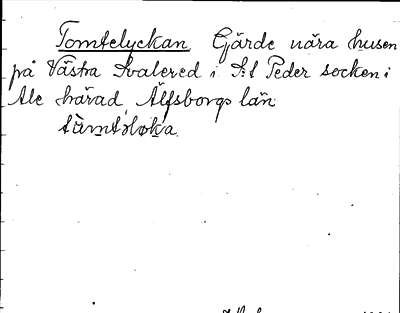 Tomtelyckan Gärde nära husen
på Västra Ivalered i S:t Peder socken i
Ale härad, Älfsborgs län